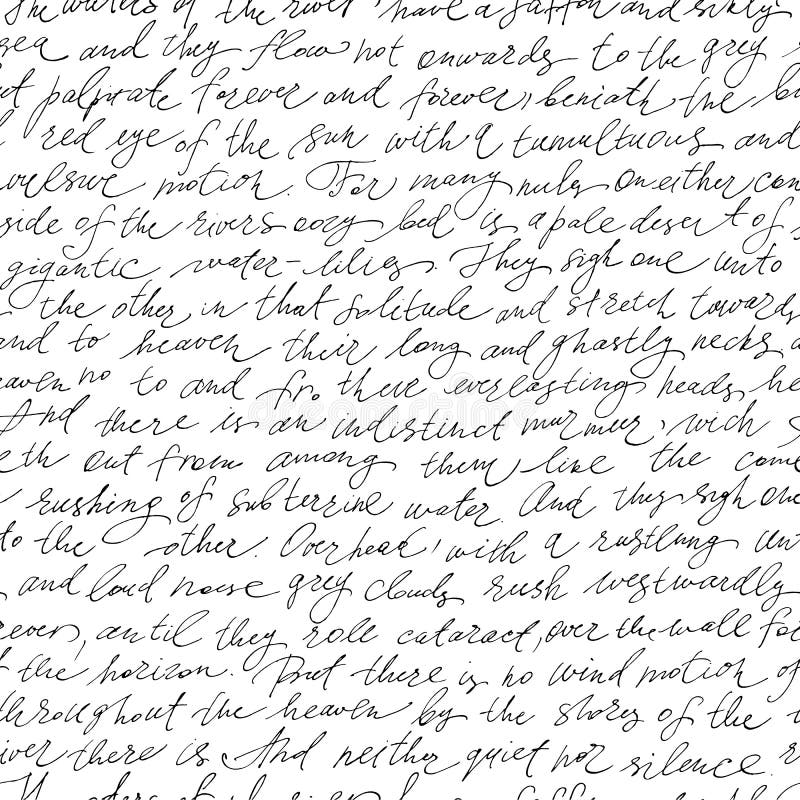 The waters of the river have a saffon and sikly
sea and they flow not onwards to the grey
ut palpitate forever and forever, beneath the
red eye of the sun with a tumultuous and
vulsive motion. For many miles on either con
side of the rivers oozy bed is a pale desert of
gigantic water-lilies. They sigh one unto
the other in that solitude and stretch towards
and to heaven their long and ghastly necks a
eaven no to and fro there everlasting heads he
And there is an indistinct murmur, wich
eth out from among them like the come
rushing of subterrine water. And they sigh one
to the other. Overhead, with a rustlung un
and loud noise grey clouds rush westwardly
rever, until they role cataract, over the wall fo
f the horizon. But there is no wind motion of
throughout the heaven by the shores of the
iver there is And neither quiet nor silence. r